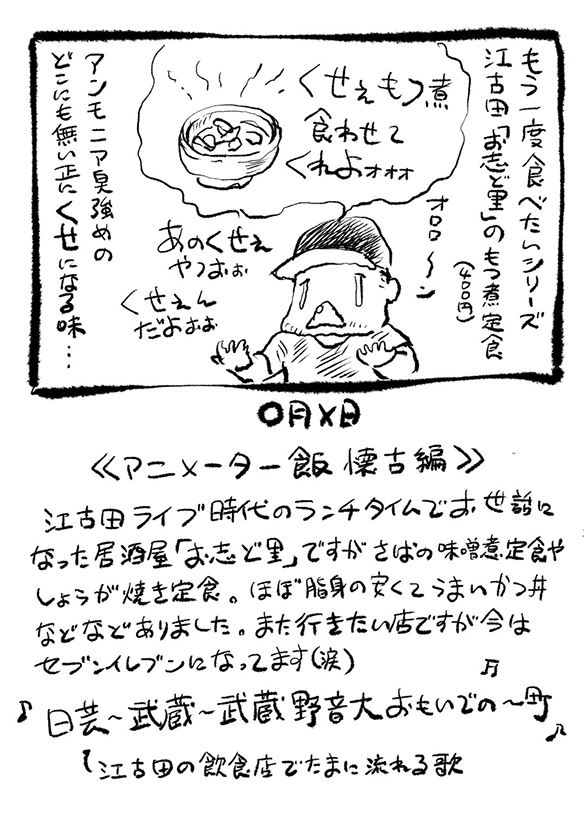 もう一度食べたいシリーズ
江古田「お志ど里」のもつ煮定食
(400円)
くせぇもつ煮
食わせて
くれよォォォ
オロロ〜ン
あのくせぇ
やつおぉ
くせぇん
だよぉぉ
アンモニア臭強めの
どこにも無い正にくせになる味…
〇月×日
≪アニメーター飯 懐古編≫
江古田ライブ時代のランチタイムでお世話に
なった居酒屋「お志ど里」ですがさばの味噌煮定食や
しょうが焼き定食。ほぼ脂身の安くてうまいかつ丼
などなどありました。また行きたい店ですが今は
セブンイレブンになってます(涙)
♪日芸〜武蔵〜武蔵野音大おもいでの〜町♪
江古田の飲食店でたまに流れる歌